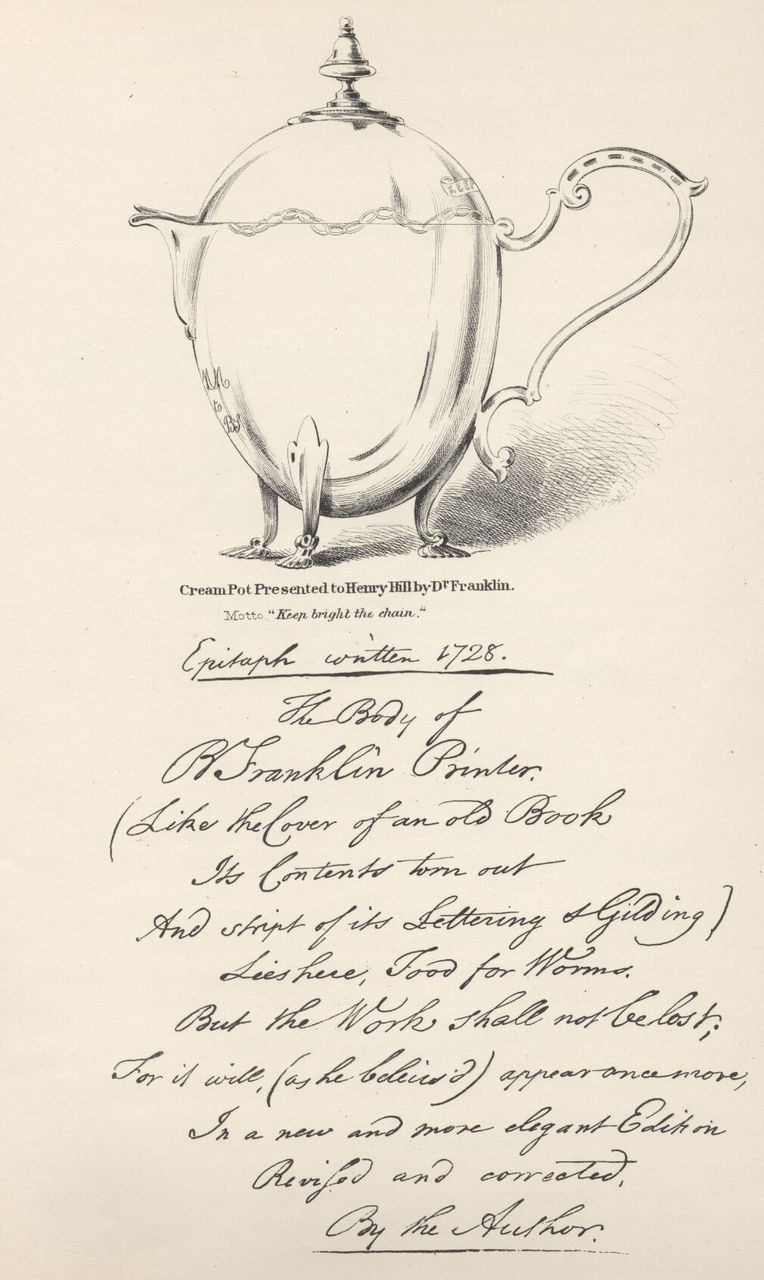 KEEP
to
Cream Pot Presented to Henry Hill by Dr Franklin.
Motto. "Keep bright the chain."
Epitaph written 1728.
The Body of
B Franklin Printer.
(Like the Cover of an old Book
Its Contents torn out
And stript of its Lettering & Gilding)
Lies here, Food for Worms.
But the Work shall not be lost;
For it will, (as he beleiv'd) appear once more,
In a new and more elegant Edition
Reviſed and corrected,
By the Author.